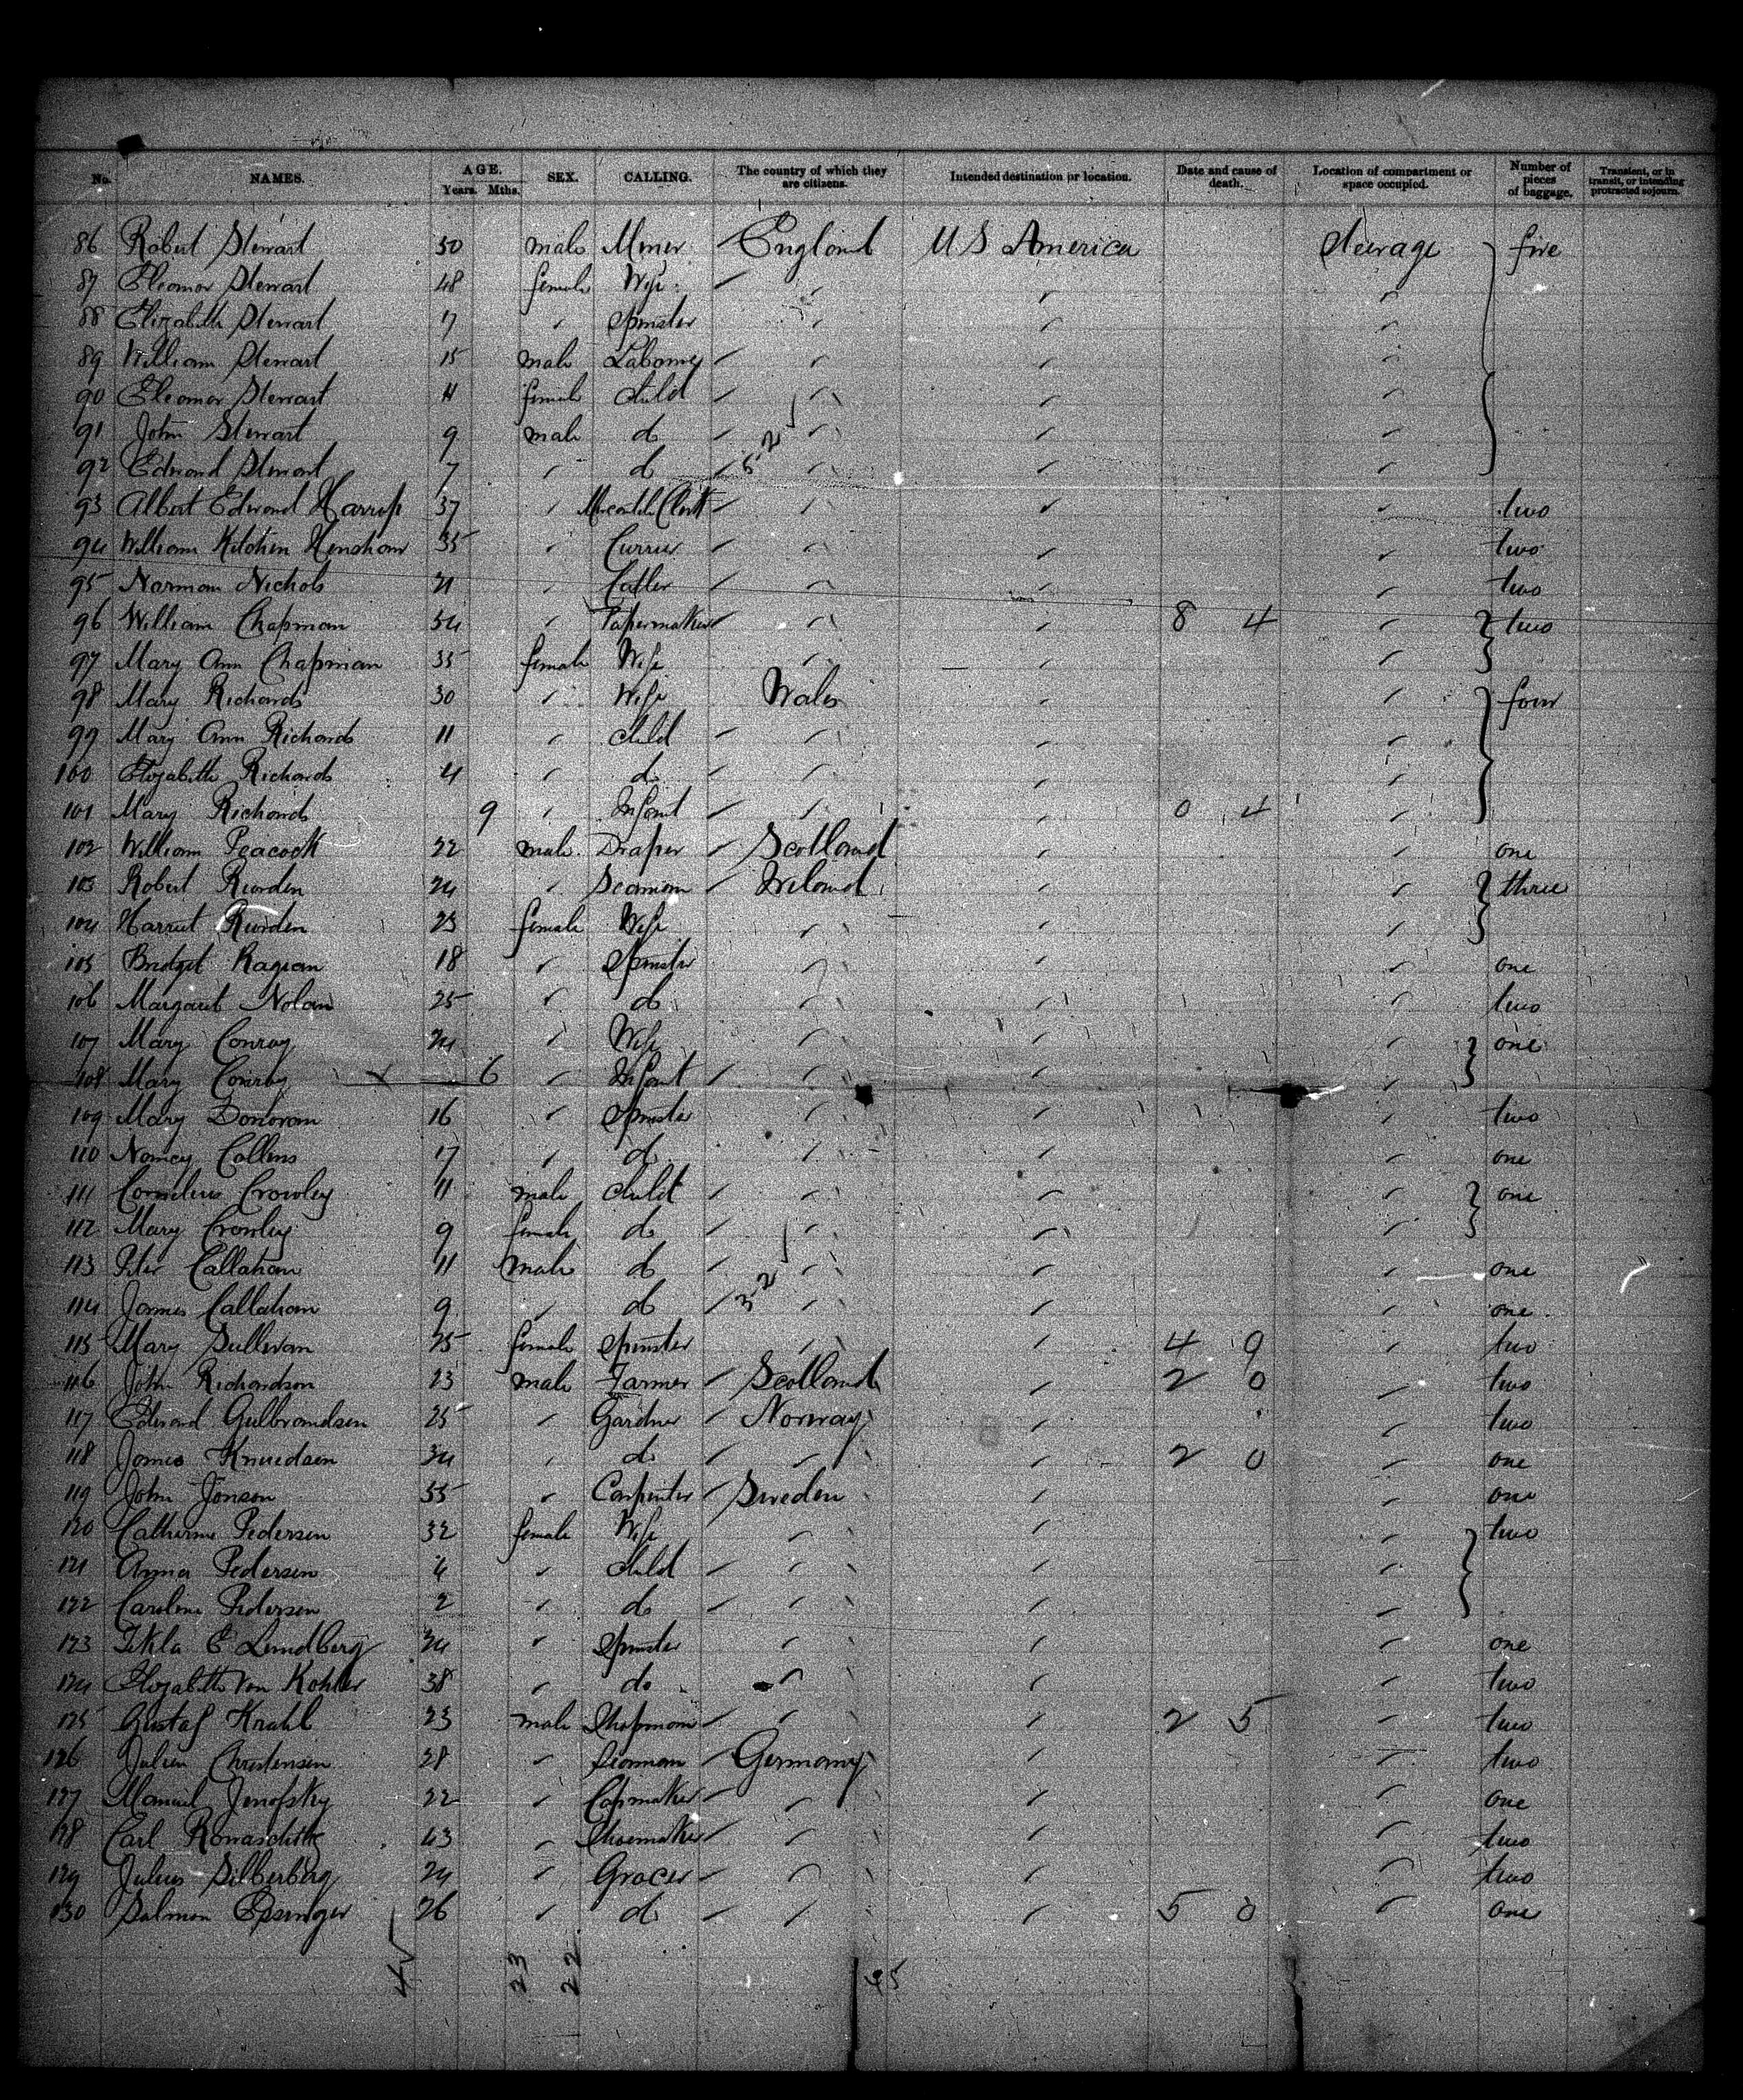 No. NAMES. AGE. Years. Mths. SEX. CALLING. The country of which they are citizens. Intended destination or location. Date and cause of death. Location of compartment or space occupied. Number of pieces of baggage. Transient, or in transit, or intending protracted sojourn.
86 Robert Stewart 50 male Miner England US America Steerage five
87 Eleanor Stewart 48 female Wife
88 Elizabeth Stewart 17 Spinster
89 William Stewart 15 male Labourer
90 Eleanor Stewart 11 female Child
91 John Stewart 9 male do
92 Edward Stewart 7 do
93 Albert Edward Harrop 37 Mercantile Clerk two
94 William Kitchin Henshaw 35 Currier two
95 Norman Nichols 21 two
96 William Chapman 54 Papermaker 8 4 two
97 Mary Ann Chapman 55 female Wife
98 Mary Richards 30 Wife Wales four
99 Mary Ann Richards 11 Child
100 Elizabeth Richards 4 do
101 Mary Richards 9 Infant 0 4
102 William Peacock 22 male Draper Scotland one
103 Robert Riorden 24 Seaman Ireland three
104 Harriet Riorden 23 female Wife
105 Bridget 18 Spinster one
106 Margaret Nolan 25 do two
107 Mary Conroy 24 Wife one
108 Mary Conroy 6 Infant
109 Mary Donovan 16 Spinster two
110 Nancy Collins 17 do one
111 Cornelius Crowley 11 male Child one
112 Mary Crowley 9 female do
113 Peter Callahan 11 male do one
114 James Callahan 9 do one
115 Mary Sullivan 25 female Spinster 4 9 two
116 John Richardson 23 male Farmer Scotland 2 0 two
117 Edward Gulbrandsen 25 Gardner Norway two
118 James Knuedsen 34 do 2 0 one
119 John Jonson 55 Carpenter Sweden one
120 Catherine Pedersen 32 female Wife two
121 Anna Pedersen 4 Child
122 Caroline Pedersen 2 do
123 Tekla E Lundberg 24 Spinster one
124 Elizabeth Von Kohler 38 do two
125 Gustaf Krahl 23 male Shopman 2 5 two
126 Julien Christensen 28 Seaman Germany two
127 Jenofsky 22 Capmaker one
128 Carl 43 Shoemaker two
129 Julius Silberberg 24 Grocer two
130 Salmon Epsinger 26 do 5 0 one
23 22 45